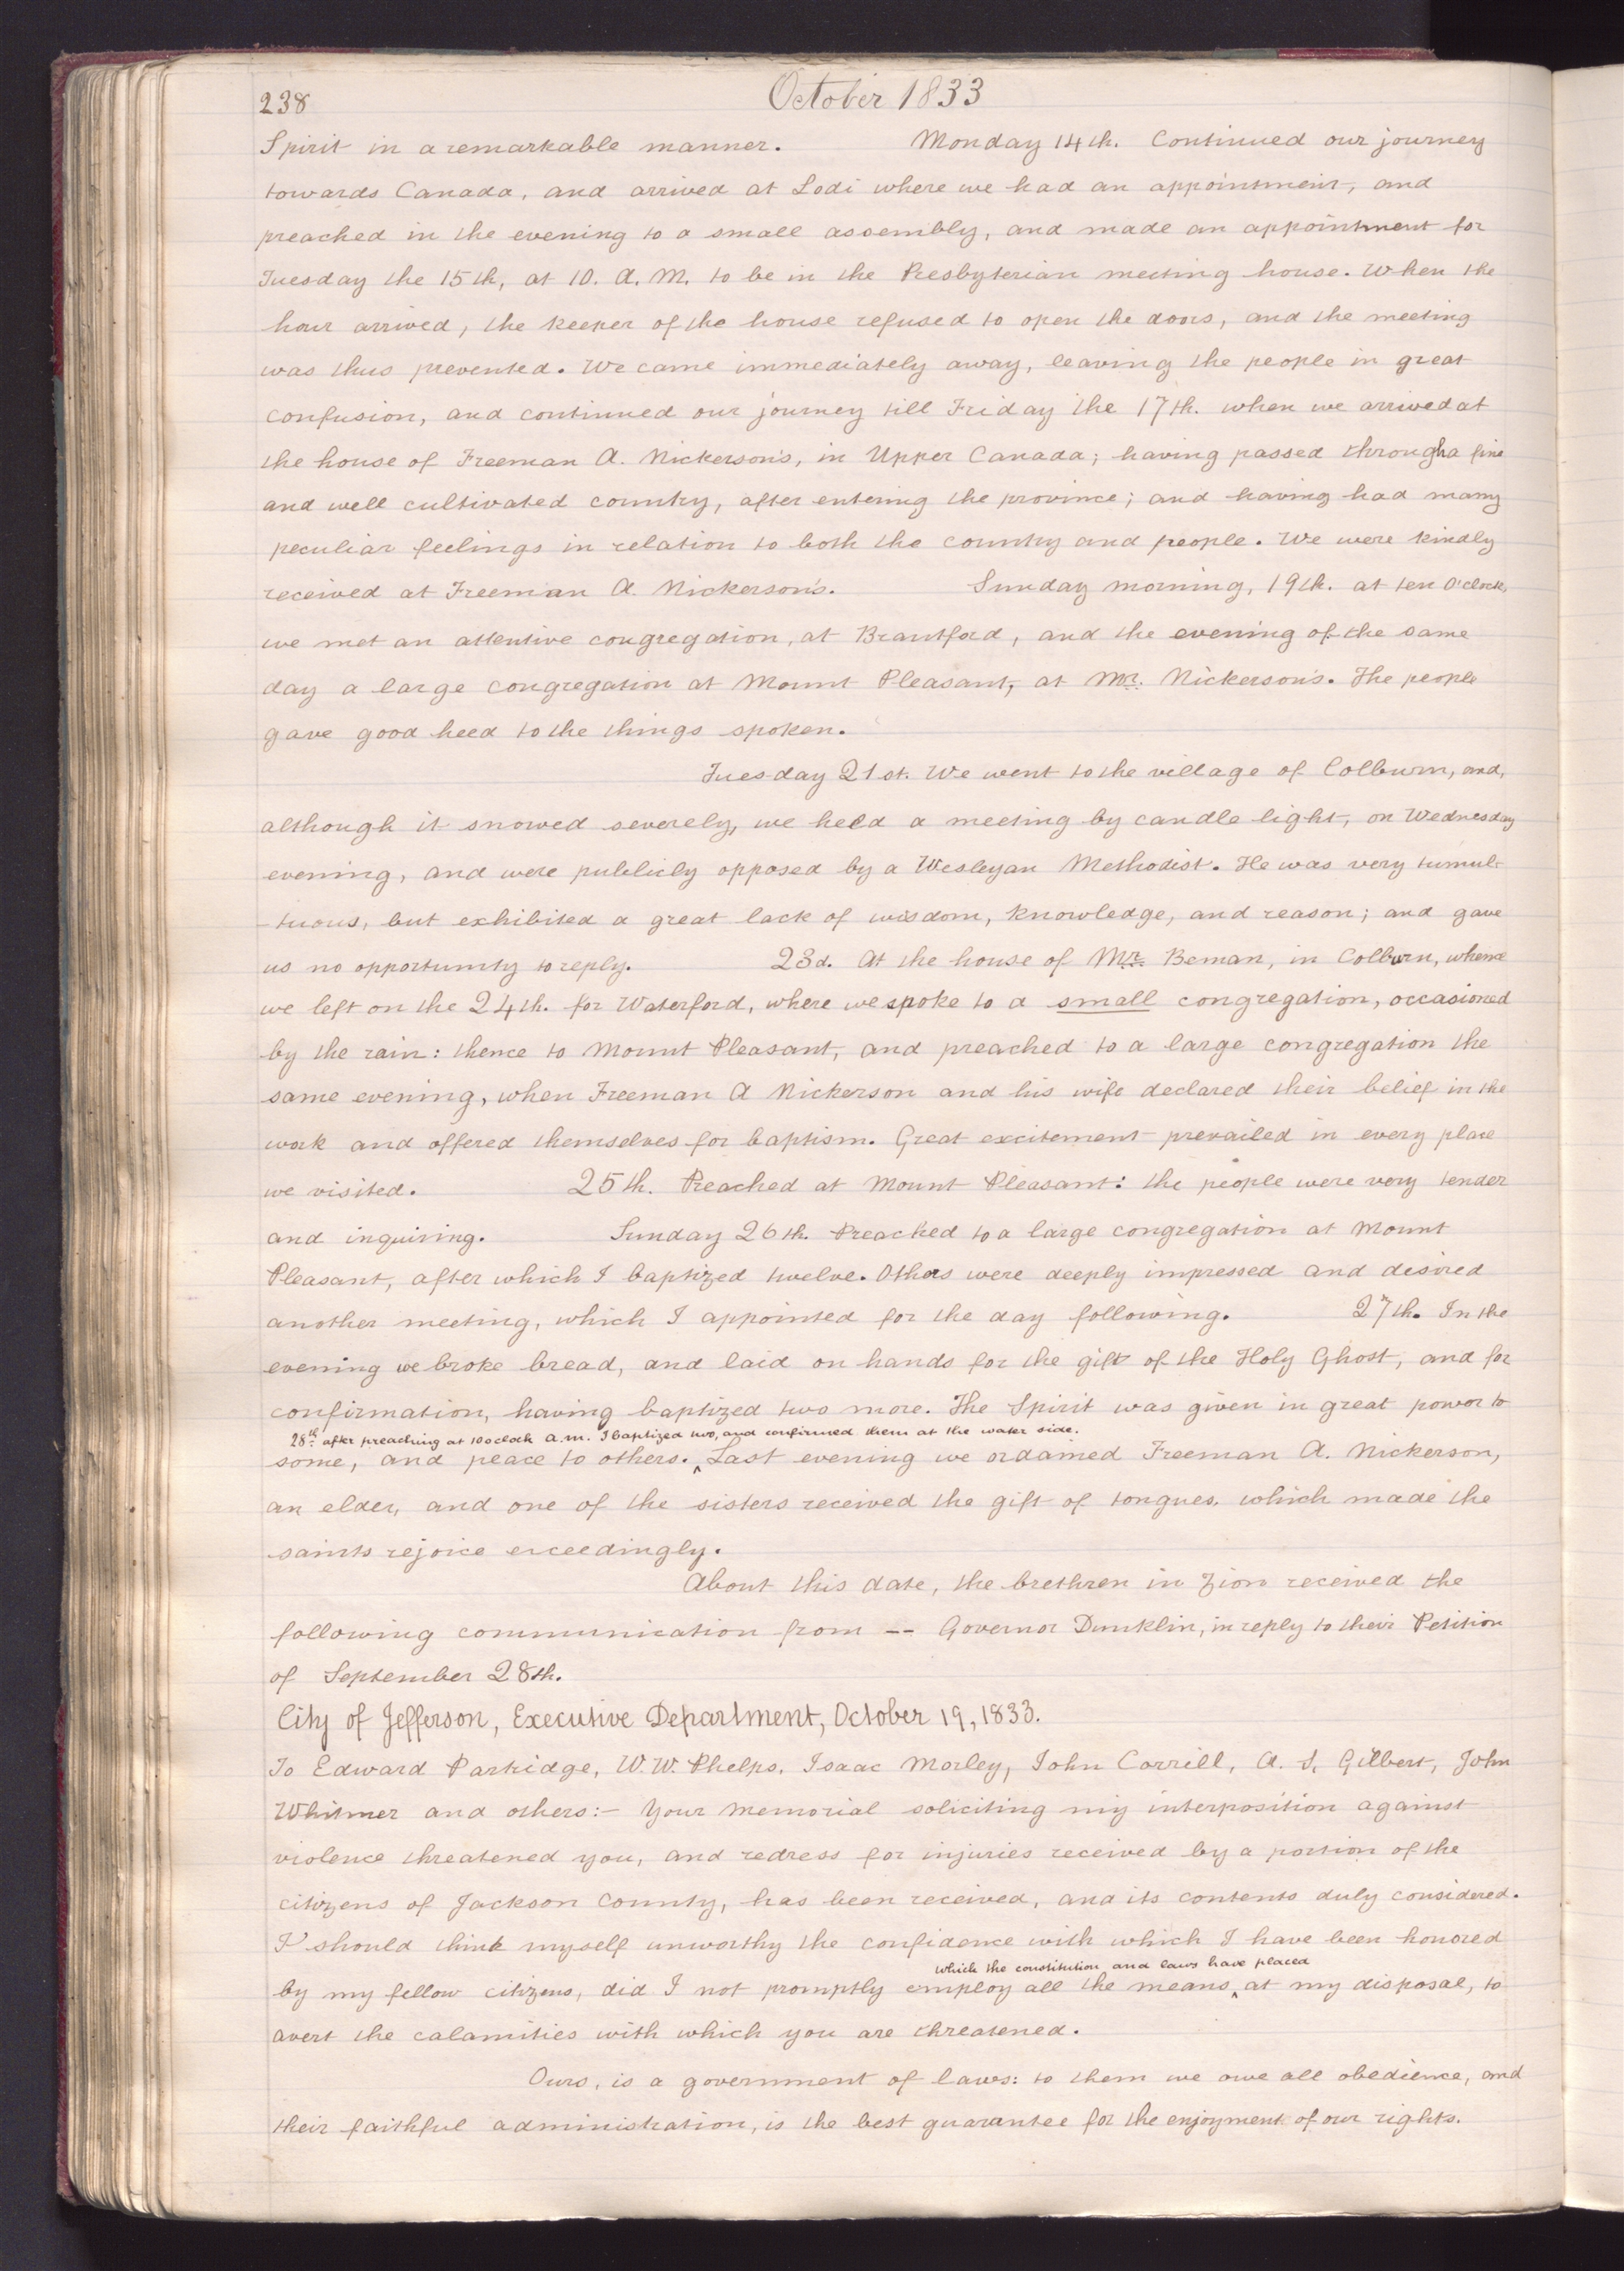 238
October 1833
Spirit in a remarkable manner. Monday 14th. Continued our journey
towards Canada, and arrived at Lodi where we had an appointment, and
preached in the evening to a small assembly, and made an appointment for
Tuesday the 15th, at 10. A. M. to be in the Presbyterian meeting house. When the
hour arrived, the keeper of the house refused to open the doors, and the meeting
was thus prevented. We came immediately away, leaving the people in great
confusion, and continued our journey till Friday the 17th. when we arrived at
the house of Freeman A. Nickerson's, in Upper Canada; having passed through a fine
and well cultivated country, after entering the province; and having had many
peculiar feelings in relation to both the country and people. We were kindly
received at Freeman A. Nickerson's. Sunday morning, 19th. at ten O'clock,
we met an attentive congregation, at Brantford, and the evening of the same
day a large congregation at Mount Pleasant, at Mr. Nickerson's. The people
gave good heed to the things spoken.
Tuesday 21st. We went to the village of Colburn, and,
although it snowed severely, we held a meeting by candle light, on Wednesday
evening, and were publicly opposed by a Wesleyan Methodist. He was very tumul-
-tuous, but exhibited a great lack of wisdom, knowledge, and reason; and gave
us no opportunity to reply. 23d. At the house of Mr. Beman, in Colburn, whence
we left on the 24th. for Waterford, where we spoke to a small congregation, occasioned
by the rain: thence to Mount Pleasant, and preached to a large congregation the
same evening, when Freeman A Nickerson and his wife declared their belief in the
work and offered themselves for baptism. Great excitement prevailed in every place
we visited. 25th. Preached at Mount Pleasant: the people were very tender
and inquiring. Sunday 26th. Preached to a large congregation at Mount
Pleasant, after which I baptized twelve. Others were deeply impressed and desired
another meeting, which I appointed for the day following. 27th. In the
evening we broke bread, and laid on hands for the gift of the Holy Ghost, and for
confirmation, having baptized two more. The Spirit was given in great power to
28th after preaching at 10 oclock a.m. I baptized two, and confirmed them at the water side.
some, and peace to others. ^ Last evening we ordained Freeman A. Nickerson,
an elder, and one of the sisters received the gift of tongues, which made the
saints rejoice exceedingly.
About this date, the brethren in Zion received the
following communication from -- Governor Dunklin, in reply to their Petition
of September 28th.
City of Jefferson, Executive Department, October 19, 1833.
To Edward Partridge, W. W. Phelps, Isaac Morley, John Corrill, A. S. Gilbert, John
Whitmer and others:- Your memorial soliciting my interposition against
violence threatened you, and redress for injuries received by a portion of the
citizens of Jackson County, has been received, and its contents duly considered.
I should think myself unworthy the confidence with which I have been honored
which the constitution and laws have placed
by my fellow citizens, did I not promptly employ all the means ^ at my disposal, to
avert the calamities with which you are threatened.
Ours, is a government of laws: to them we owe all obedience, and
their faithful administration, is the best guarantee for the enjoyment of our rights.